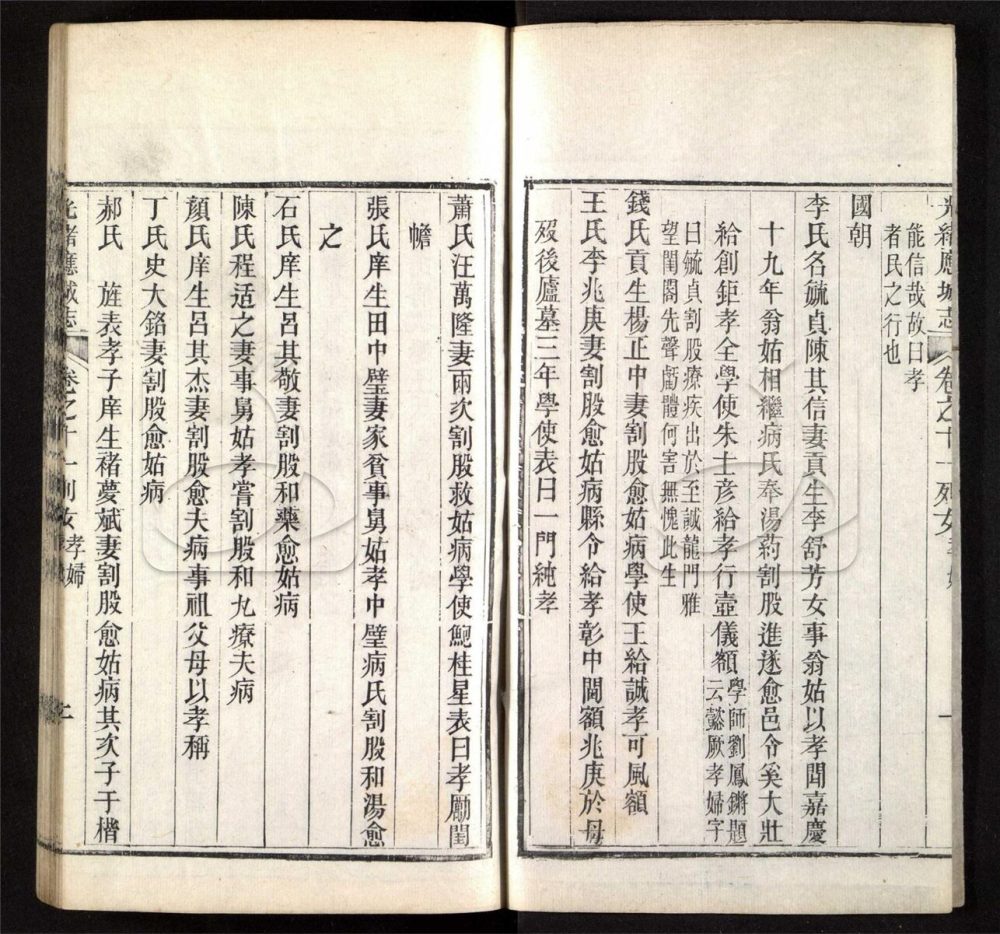 光緒應城志 卷之十一列女 孝婦 一
能信哉故曰孝
者民之行也
國朝
李氏名毓貞陳其信妻貢生李舒芳女事翁姑以孝聞嘉慶
十九年翁姑相繼病氏奉湯药割股進遂愈邑令奚大壯
給創鉅孝全學使朱士彥給孝行壼儀額學師劉鳳鏘題
云懿厥孝婦字
曰毓貞割股療疾出於至誠龍門雅
望閨閣先聲虧體何害無愧此生
錢氏貢生楊正中妻割股愈姑病學使王給誠孝可風額
王氏李兆庚妻割股愈姑病縣令給孝彰中閫額兆庚於母
歿後廬墓三年學使表曰一門純孝
蕭氏汪萬隆妻兩次割股救姑病學使鮑桂星表曰孝勵閨
幨
張氏庠生田中璧妻家貧事舅姑孝中璧病氏割股和湯愈
之
石氏庠生呂其敬妻割股和藥愈姑病
陳氏程适之妻事舅姑孝嘗割股和丸療夫病
顏氏庠生呂其杰妻割股愈夫病事祖父母以孝稱
丁氏史大銘妻割股愈姑病
郝氏 旌表孝子庠生褚夢斌妻割股愈姑病其次子于楷
光緒應城志 卷之十一列女 孝婦